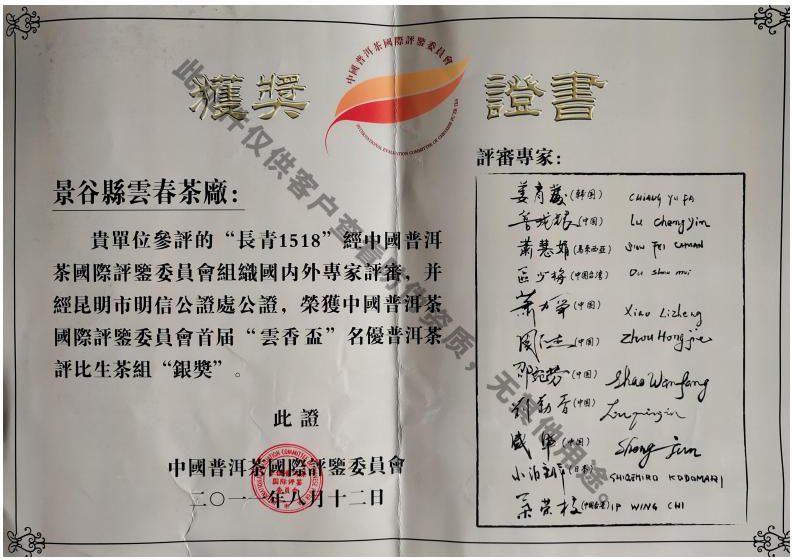 獲獎 證書
中國普洱茶國際評鑒委員會
INTERNATIONAL EVALUATION COMMITTEE OF CHINESE PU'ER TEA
景谷縣雲春茶廠：
貴單位參評的“長青1518”經中國普洱
茶國際評鑒委員會組織國內外專家評審，并
經昆明市明信公證處公證，榮獲中國普洱茶
國際評鑒委員會首届“雲香盃”名優普洱茶
評比生茶組“銀獎”。
此證
中國普洱茶國際評鑒委員會
二〇一一年八月十二日
評審專家：
姜育發(韩国) CHIANG YU FA
(中国) Lu Changyin
蕭慧娟(馬來西亞)
区少梅(中国台湾)
萧力争(中国) Xiao Lizheng
周红杰(中国) Zhou Hongjie
邵宛芳(中国) Shao Wanfang
(中国)
盛军(中国) Sheng Jun
小泊(日本) SHIGEHIRO KODOMARI
葉荣枝(中国香港) IP WING CHI
此文件仅供客户查看所供资质，无其他用途。